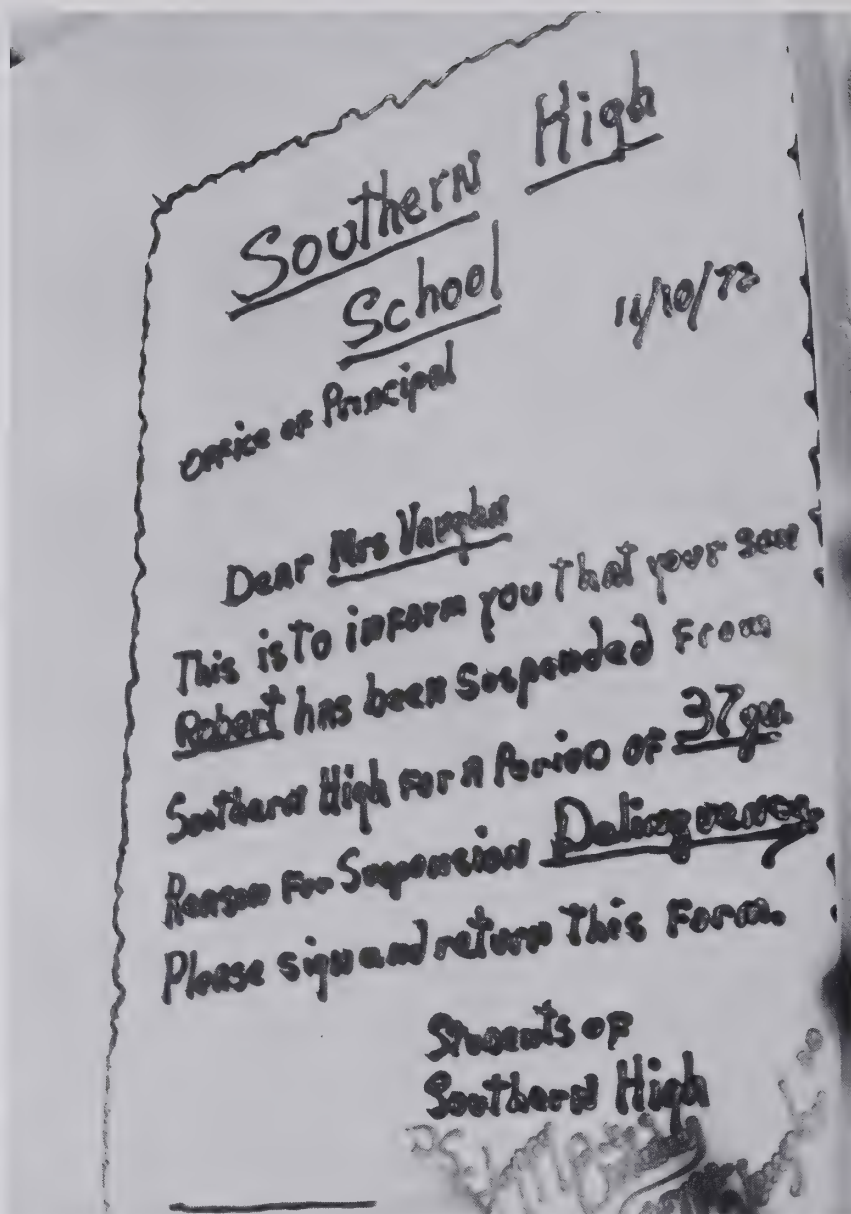 Southern High
School
11/10/73
Office of Principal
Dear Mrs Vaughn
This is to inform you that your son
Robert has been suspended from
Southern High for a Period of 37 yrs.
Reason For Suspension Delinquency.
Please sign and return This Form.
Students of
Southern High